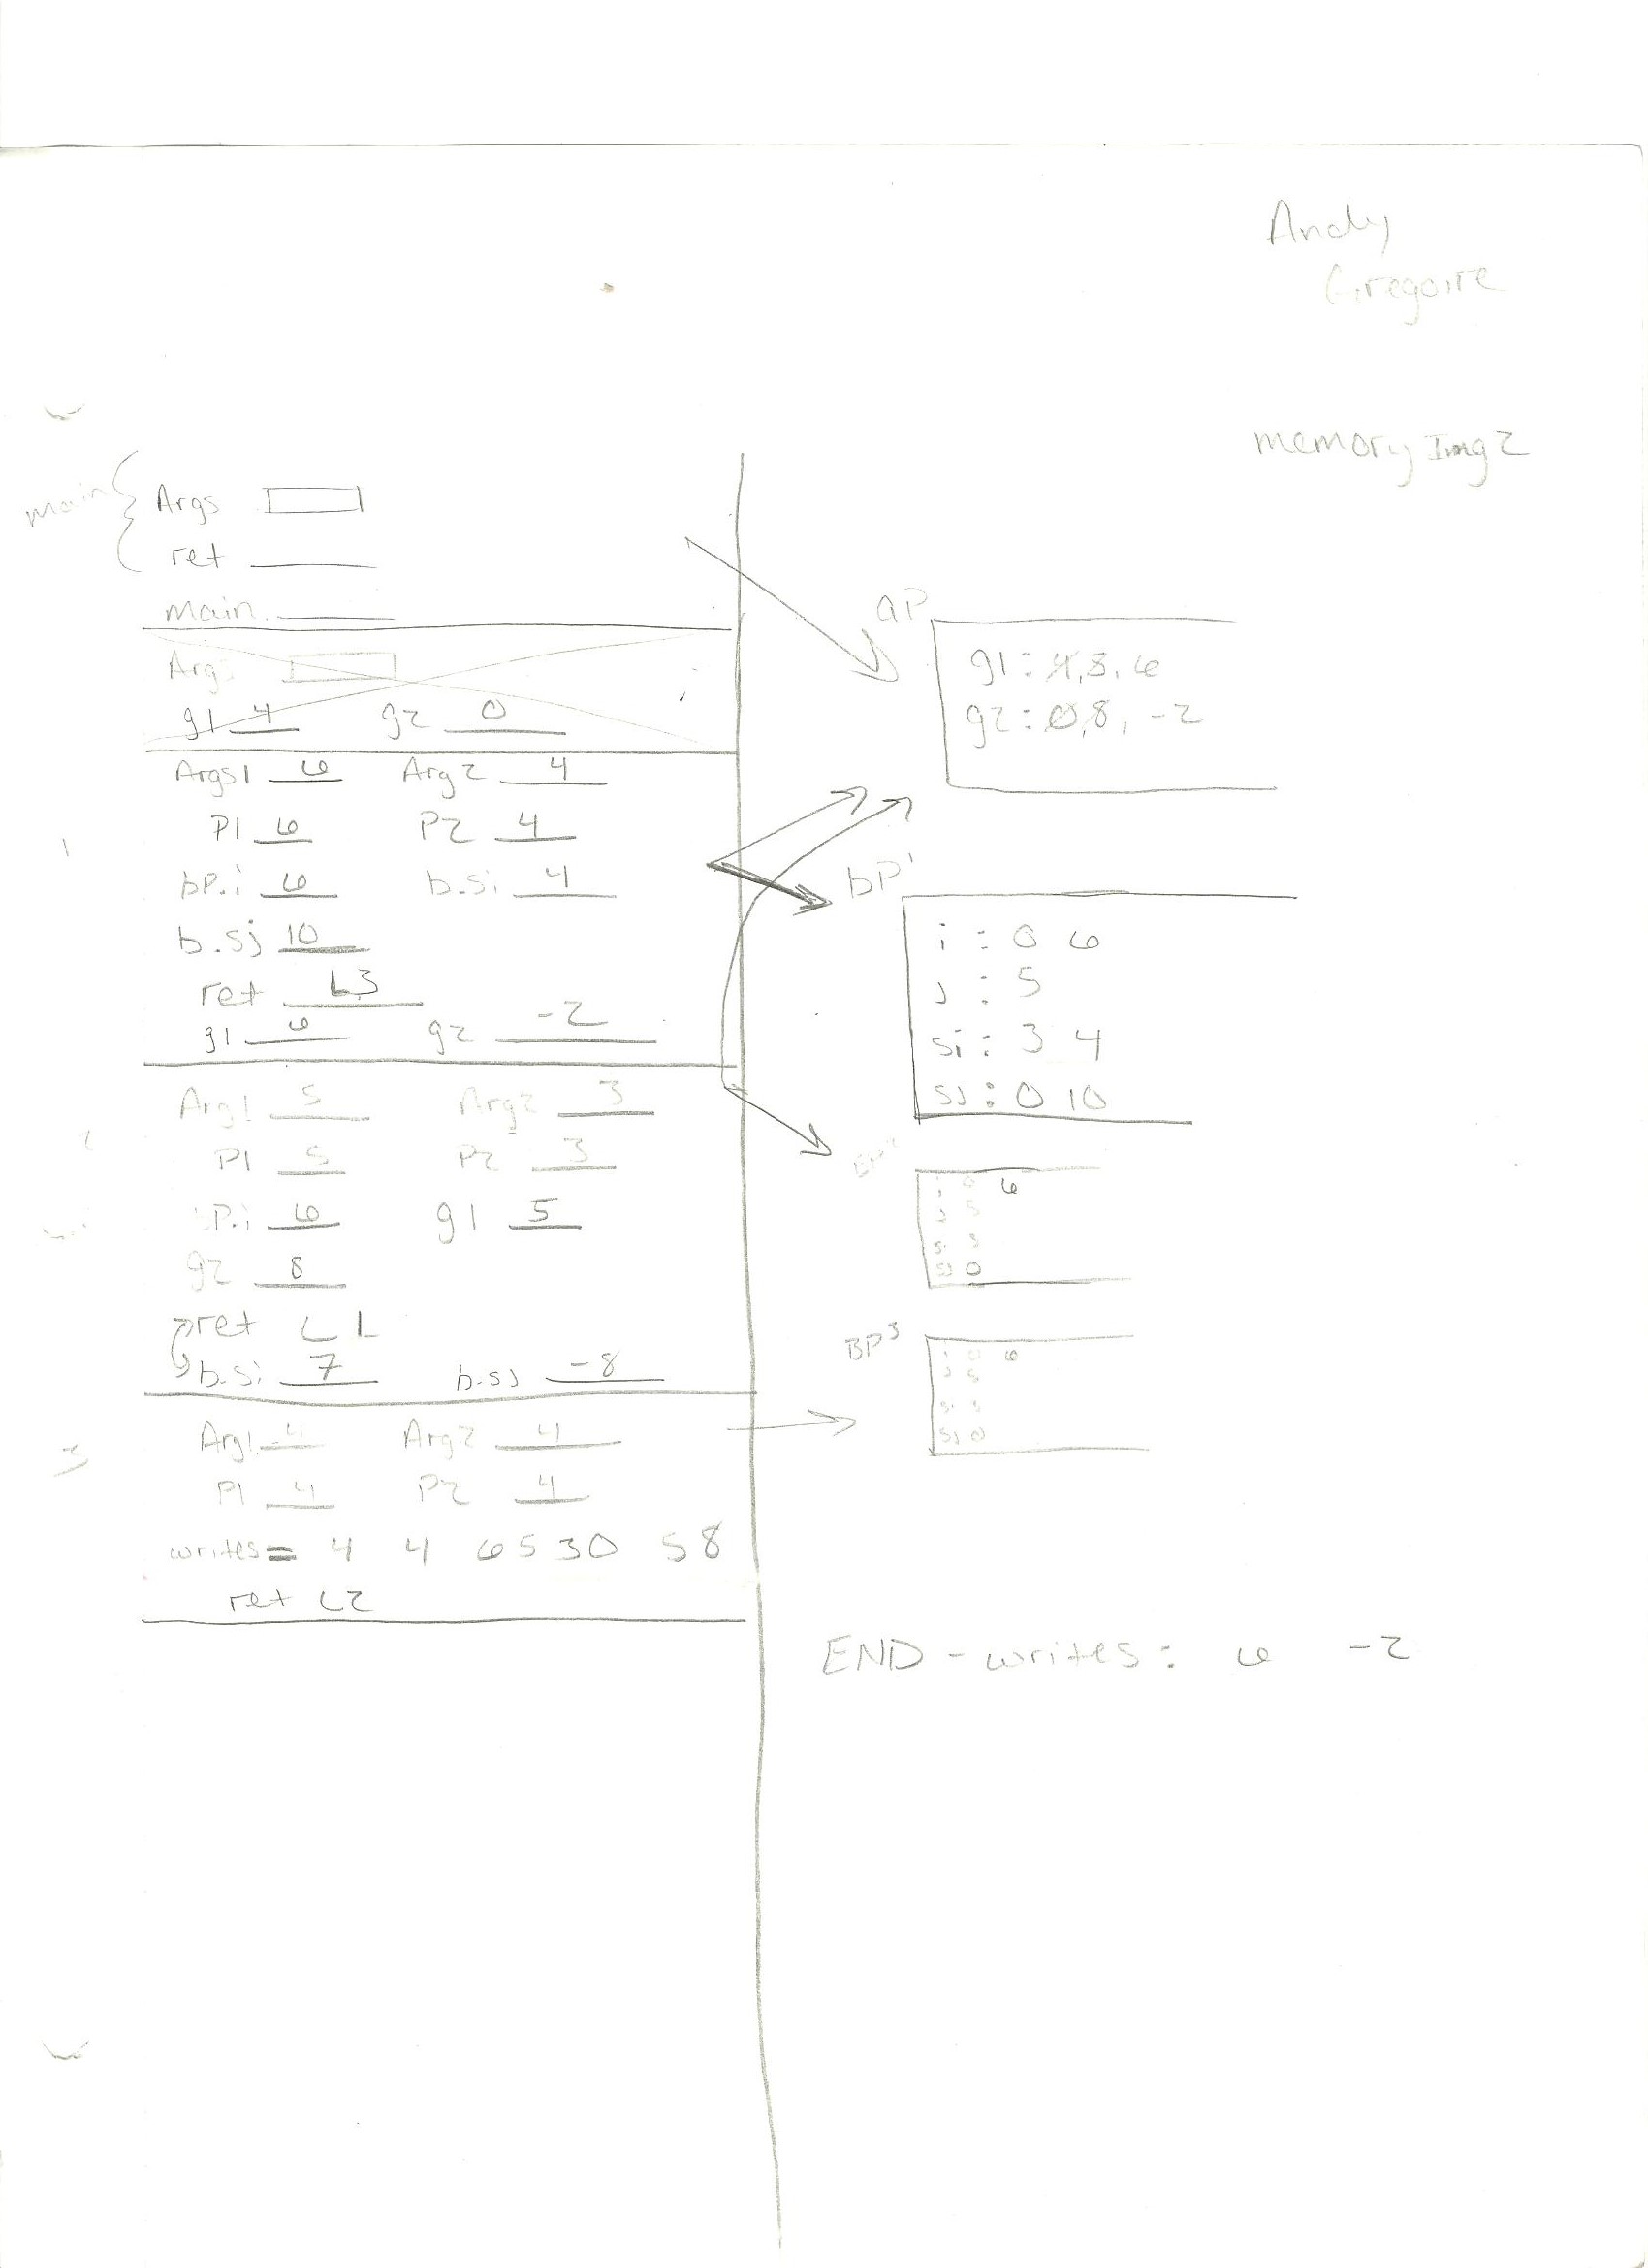 Andy
Gregoire
memory Img2
main
Args
ret
main.
Args
g1 4 g2 0
Args1 6 Arg2 4
P1 6 P2 4
bP.i 6 b.si 4
b.sj 10
ret L3
g1 6 g2 -2
Arg1 5 Arg2 3
P1 5 P2 3
P.i 6 g1 5
g2 8
ret L1
b.si 7 b.sj -8
Arg1 4 Arg2 4
P1 4 P2 4
writes= 4 4 6530 58
ret L2
aP
g1: 4,5,6
g2: 0,8, -2
bP1
i : 0 6
j : 5
si : 3 4
sj : 0 10
6
0
BP3
i 0 6
j 5
sj 0
END - writes: 6 -2